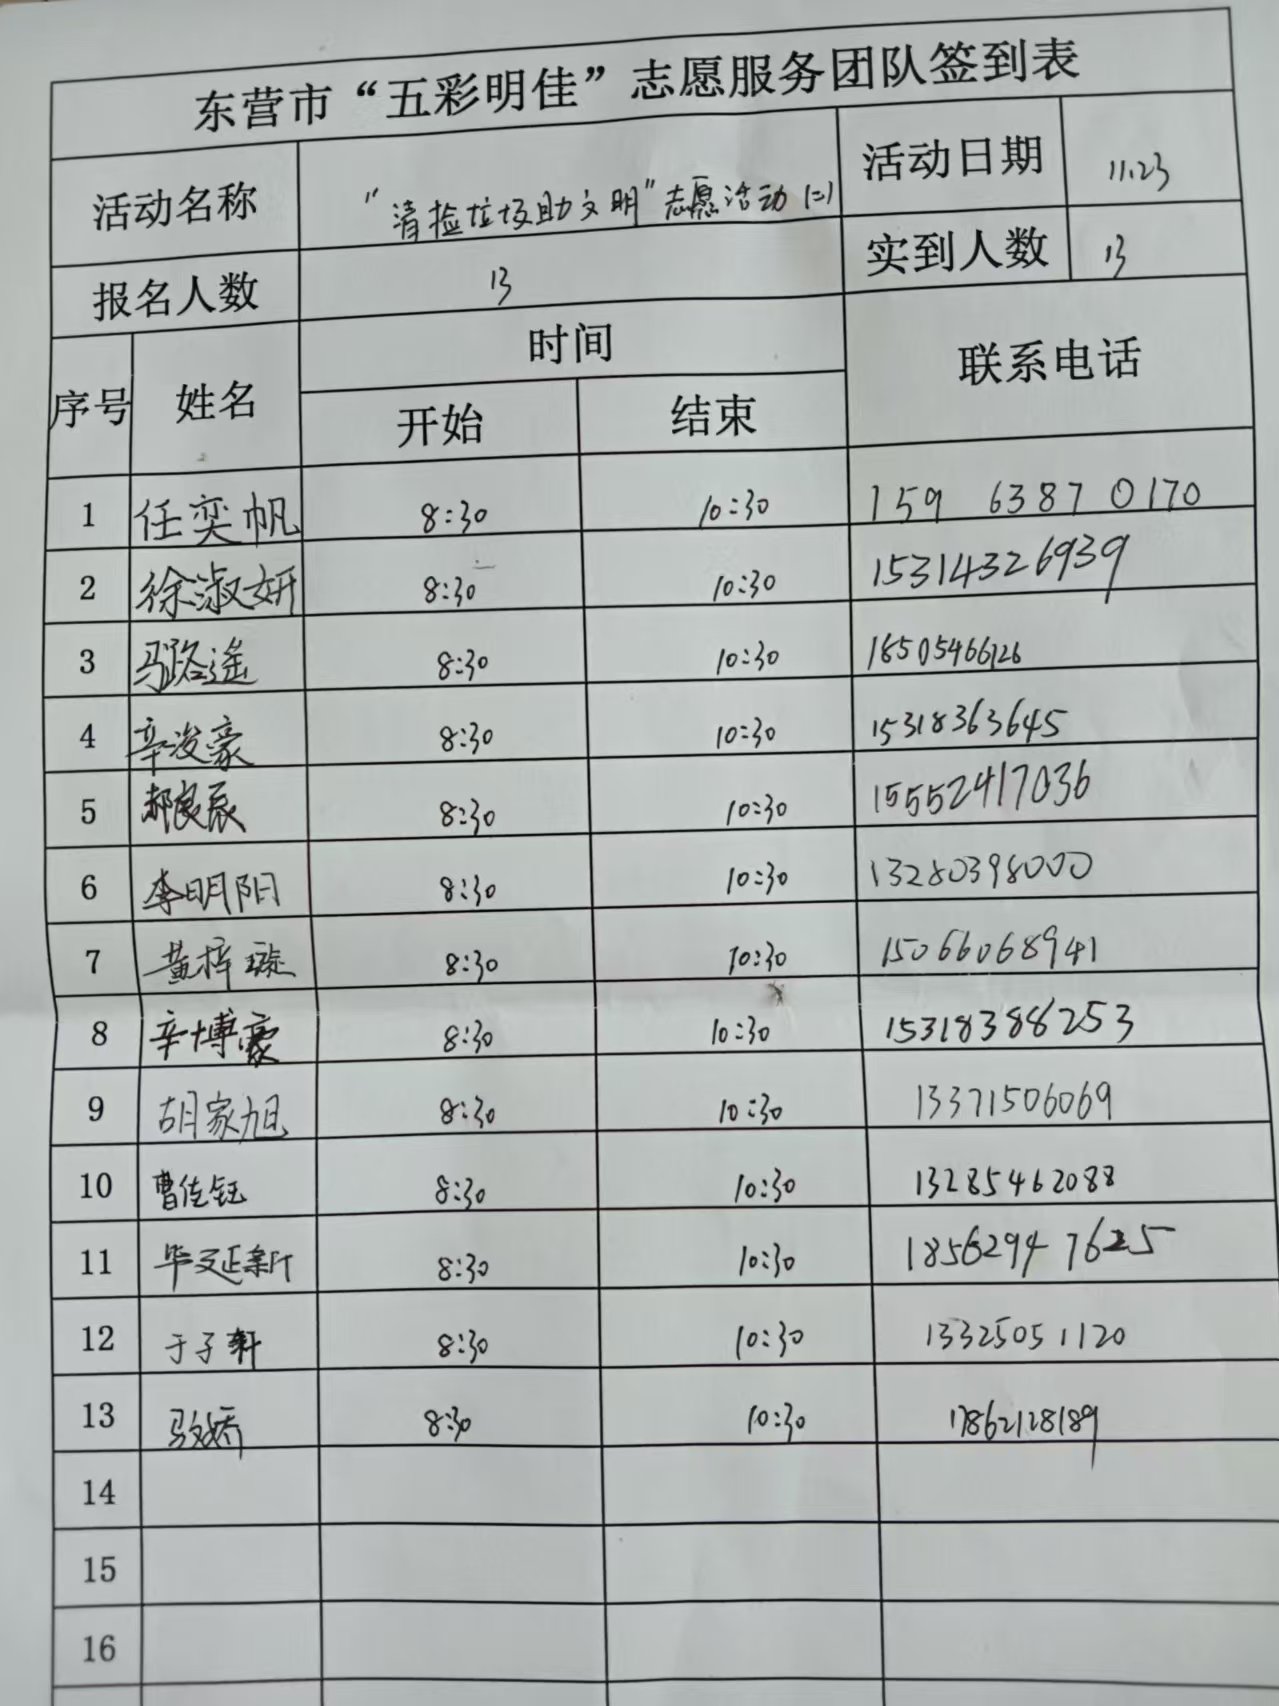 东营市“五彩明佳”志愿服务团队签到表
活动名称 “清捡垃圾助文明”志愿活动(二) 活动日期 11.23
报名人数 13 实到人数 13
序号 姓名 时间 联系电话
开始 结束
1 任奕帆 8:30 10:30 159 6387 0170
2 徐淑妍 8:30 10:30 15314326939
3 马路遥 8:30 10:30 18505466126
4 辛浚豪 8:30 10:30 15318363645
5 郝良辰 8:30 10:30 15552417036
6 李明阳 8:30 10:30 13280398000
7 黄梓璇 8:30 10:30 15066068941
8 辛博豪 8:30 10:30 15318388253
9 胡家旭 8:30 10:30 13371506069
10 曹佳钰 8:30 10:30 13285462088
11 毕延新 8:30 10:30 1856294 7625
12 于子轩 8:30 10:30 13325051120
13 8:30 10:30 17862128189
14
15
16